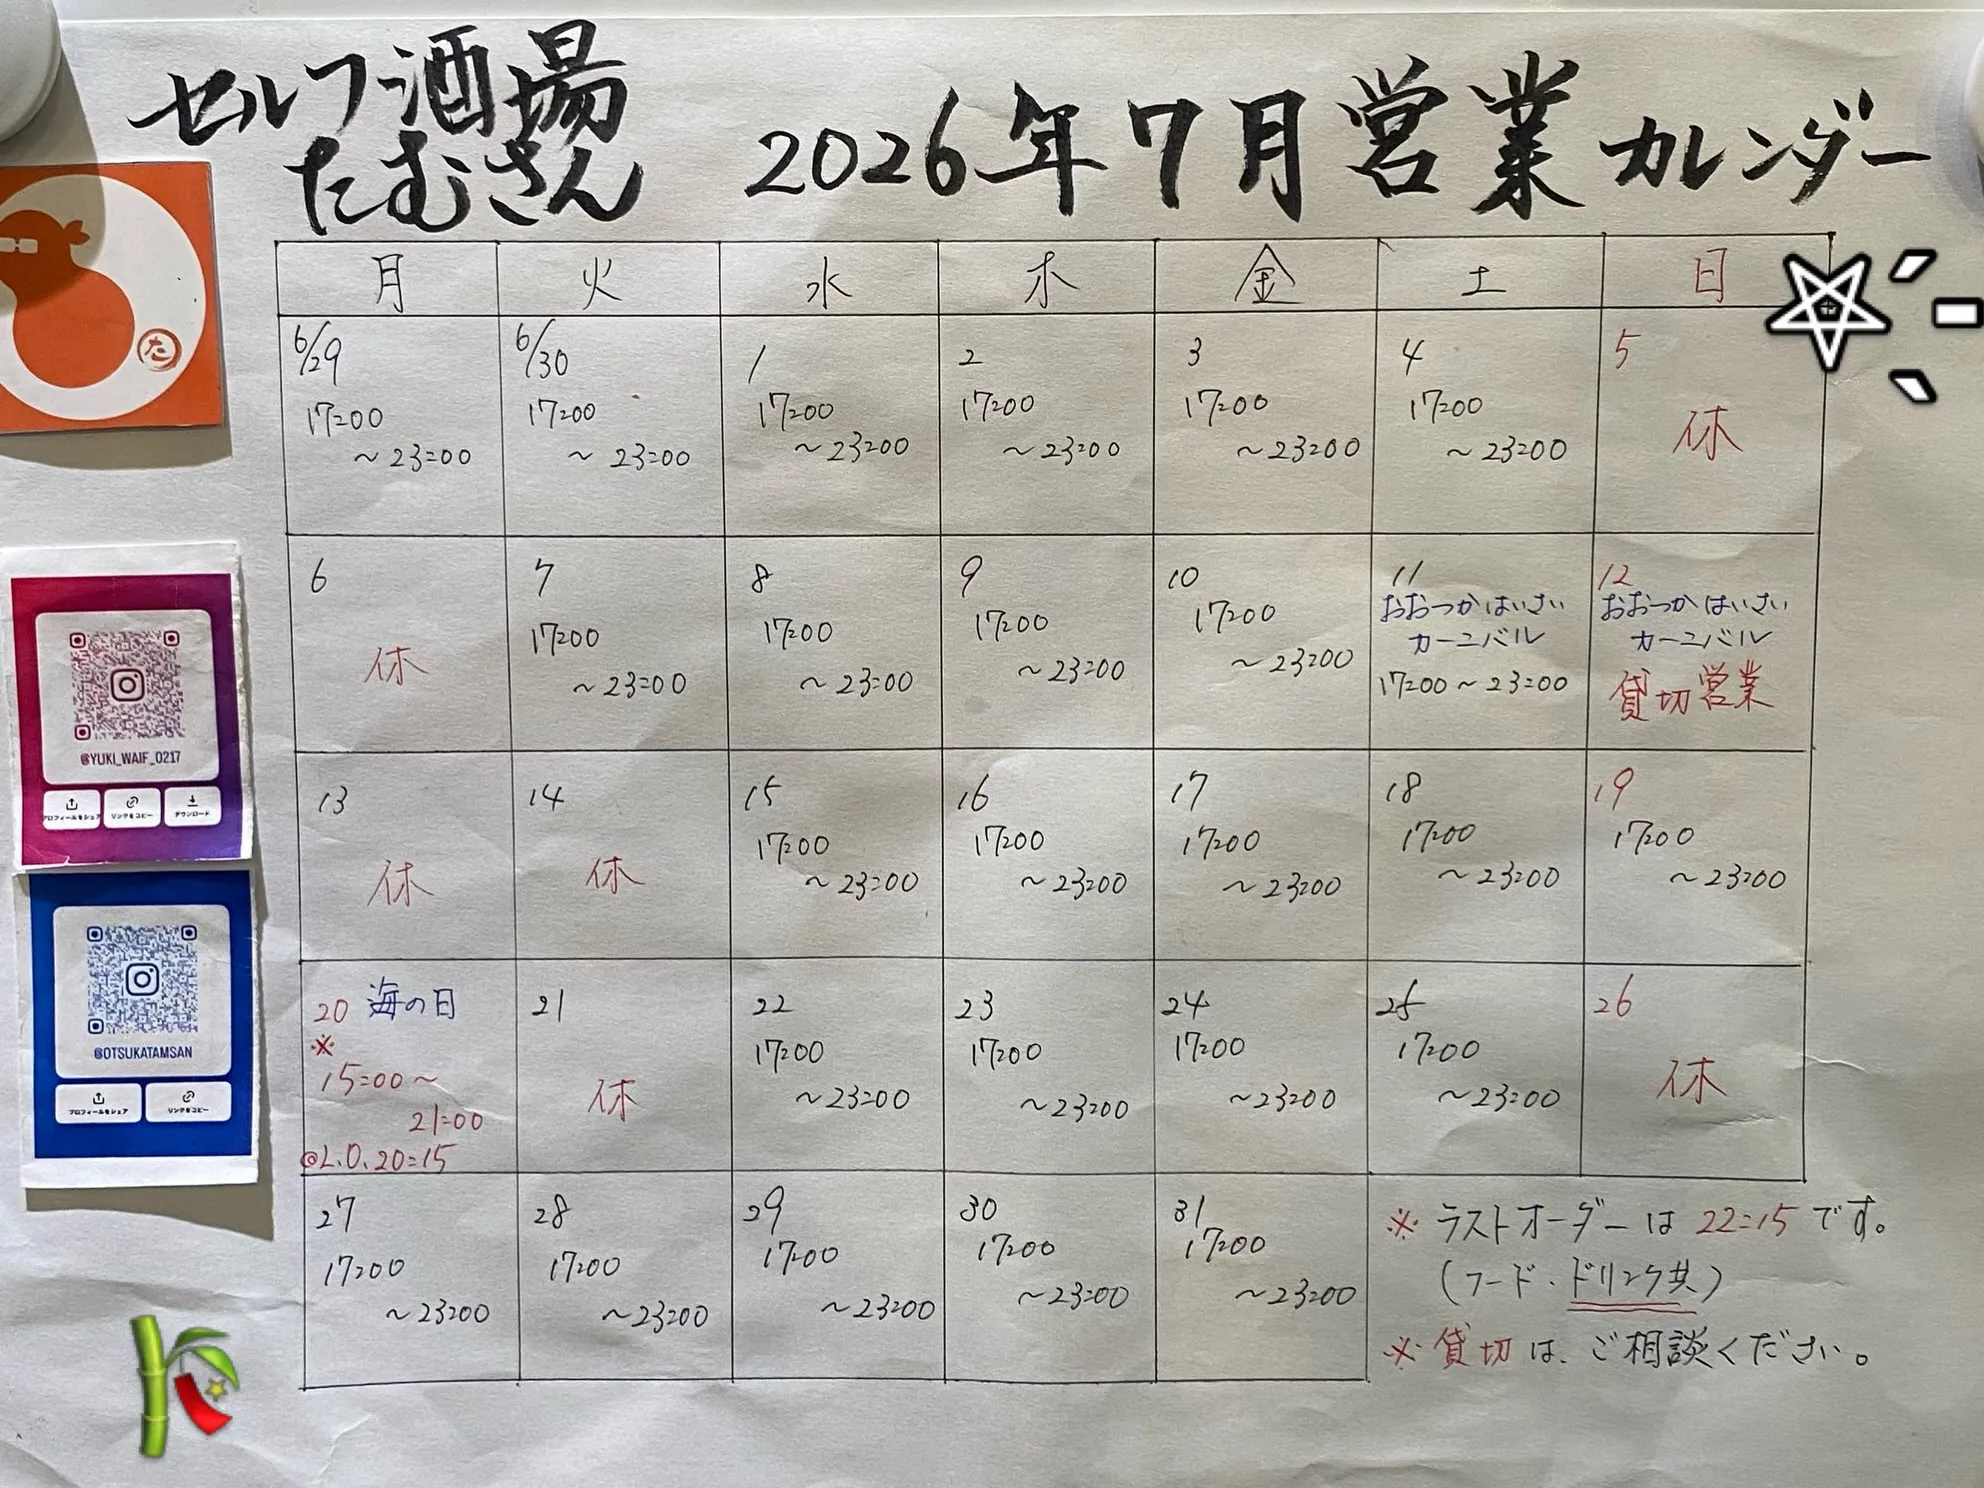 セルフ酒場
たむさん
2026年7月営業カレンダー
月 火 水 木 金 土 日
6/29
17:00
~23:00
6/30
17:00
~23:00
1
17:00
~23:00
2
17:00
~23:00
3
17:00
~23:00
4
17:00
~23:00
5
休
6
休
7
17:00
~23:00
8
17:00
~23:00
9
17:00
~23:00
10
17:00
~23:00
11
おおつかはいさい
カーニバル
17:00~23:00
12
おおつかはいさい
カーニバル
貸切営業
13
休
14
休
15
17:00
~23:00
16
17:00
~23:00
17
17:00
~23:00
18
17:00
~23:00
19
17:00
~23:00
20 海の日
※
15:00~
21:00
◎L.O.20:15
21
休
22
17:00
~23:00
23
17:00
~23:00
24
17:00
~23:00
25
17:00
~23:00
26
休
27
17:00
~23:00
28
17:00
~23:00
29
17:00
~23:00
30
17:00
~23:00
31
17:00
~23:00
※ラストオーダーは22:15です。
(フード・ドリンク共)
※貸切は、ご相談ください。
た
@YUKI_WAIF_0217
プロフィールをシェア リンクをコピー ダウンロード
@OTSUKATAMSAN
プロフィールをシェア リンクをコピー